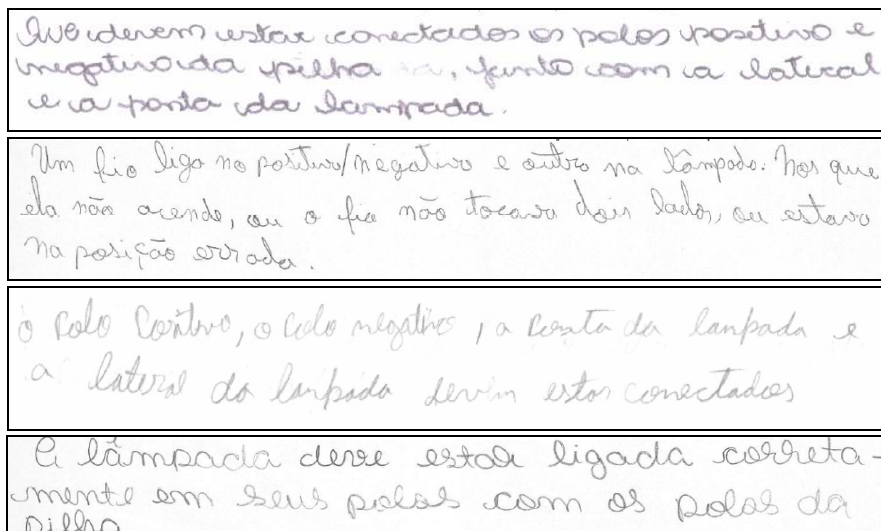 devem estar conectados os polos positivo e
negativo da pilha , junto com a lateral
e a ponta da lampada.
Um fio liga no positivo/negativo e outro na lâmpada. Nos que
ela não acende, ou o fio não tocava dois lados, ou estava
na posição errada.
o Polo Positivo, o Polo negativo, a Ponta da lanpada e
a lateral da lanpada devem estar conectados
A lâmpada deve estar ligada correta-
mente em seus polos com os polos da
pilha